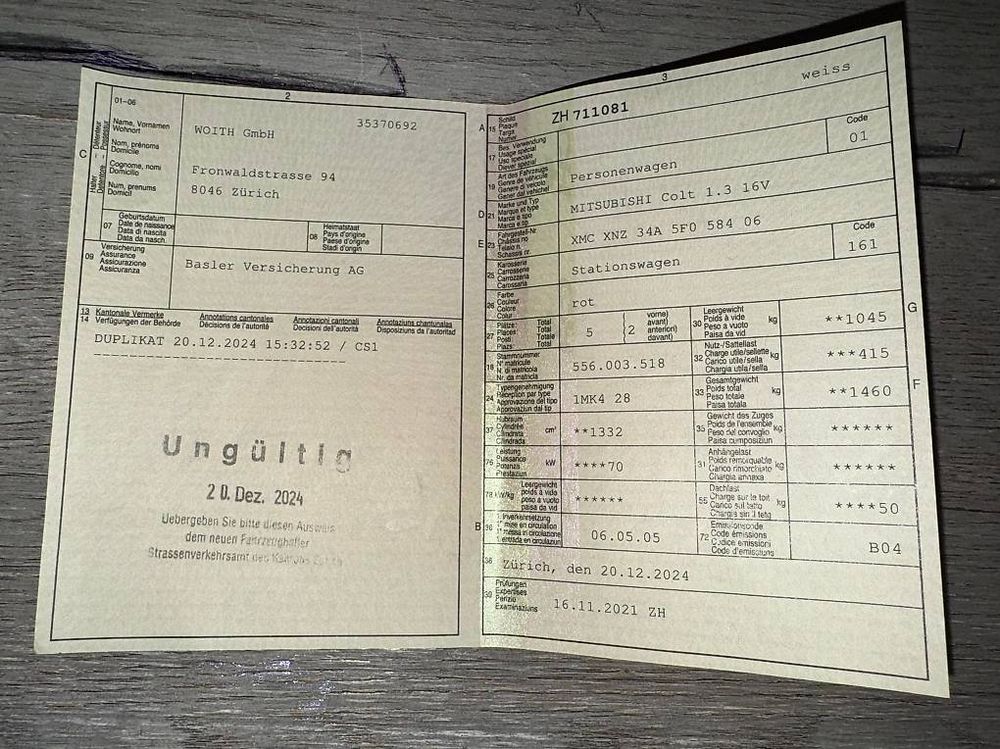 2
01-06
Name, Vornamen
Wohnort
Nom, prénoms
Domicile
Cognome, nomi
Domicilio
Num, prenums
Domicil
C
Halter
Détenteur
WOITH GmbH
35370692
Fronwaldstrasse 94
8046 Zürich
07
Geburtsdatum
Date de naissance
Data di nascita
Data da nasch.
08
Heimatstaat
Pays d'origine
Paese d'origine
Stadi d'origin
09
Versicherung
Assurance
Assicurazione
Assicuranza
Basler Versicherung AG
13 Kantonale Vermerke Annotations cantonales Annotazioni cantonali Annotaziuns chantunalas
14 Verfügungen der Behörde Décisions de l'autorité Decisioni dell'autorità Disposiziuns da l'autoritad
DUPLIKAT 20.12.2024 15:32:52 / CS1
Ungültig
20. Dez. 2024
Uebergeben Sie bitte diesen Ausweis
dem neuen Fahrzeughalter
Strassenverkehrsamt des Kantons
3
A
15
Schild
Plaque
Targa
Numer
ZH 711081
weiss
17
Bes. Verwendung
Usage spécial
Uso speciale
Diever spezial
Code
01
19
Art des Fahrzeugs
Genre de véhicule
Genere di veicolo
Gener dal vehichel
Personenwagen
D
21
Marke und Typ
Marque et type
Marca e tipo
Marca e tip
MITSUBISHI Colt 1.3 16V
E
23
Fahrgestell-Nr.
Châssis no
Telaio n.
Schassis nr.
XMC XNZ 34A 5F0 584 06
25
Karosserie
Carrosserie
Carrozzeria
Carossaria
Stationswagen
Code
161
26
Farbe
Couleur
Colore
Colur
rot
27
Plätze: Total
Places: Total
Posti: Totale
Plazs: Total
5
(2
vorne)
avant)
anteriori)
davant)
30
Leergewicht
Poids à vide
Peso a vuoto
Paisa da vid
kg
**1045
G
18
Stammnummer
N° matricule
N. di matricola
Nr. da matricla
556.003.518
32
Nutz-/Sattellast
Charge utile/sellette
Carico utile/sella
Chargia utila/sella
kg
***415
24
Typengenehmigung
Réception par type
Approvazione del tipo
Approvaziun dal tip
1MK4 28
33
Gesamtgewicht
Poids total
Peso totale
Paisa totala
kg
**1460
F
37
Hubraum
Cylindrée
Cilindrata
Cilindrada
cm³
**1332
35
Gewicht des Zuges
Poids de l'ensemble
Peso del convoglio
Paisa cumposiziun
kg
******
76
Leistung
Puissance
Potenza
Prestaziun
kW
****70
31
Anhängelast
Poids remorquable
Carico rimorchiato
Chargia annexa
kg
******
78 kW/kg
Leergewicht
poids à vide
peso a vuoto
paisa da vid
******
55
Dachlast
Charge sur le toit
Carico sul tetto
Chargia sin il tetg
kg
****50
B
36
1. Inverkehrsetzung
1re mise en circulation
1. messa in circolazione
1. entrada en circulaziun
06.05.05
72
Emissionscode
Code émissions
Codice emissioni
Code d'emissiuns
B04
38
Zürich, den 20.12.2024
39
Prüfungen
Expertises
Perizie
Examinaziuns
16.11.2021 ZH